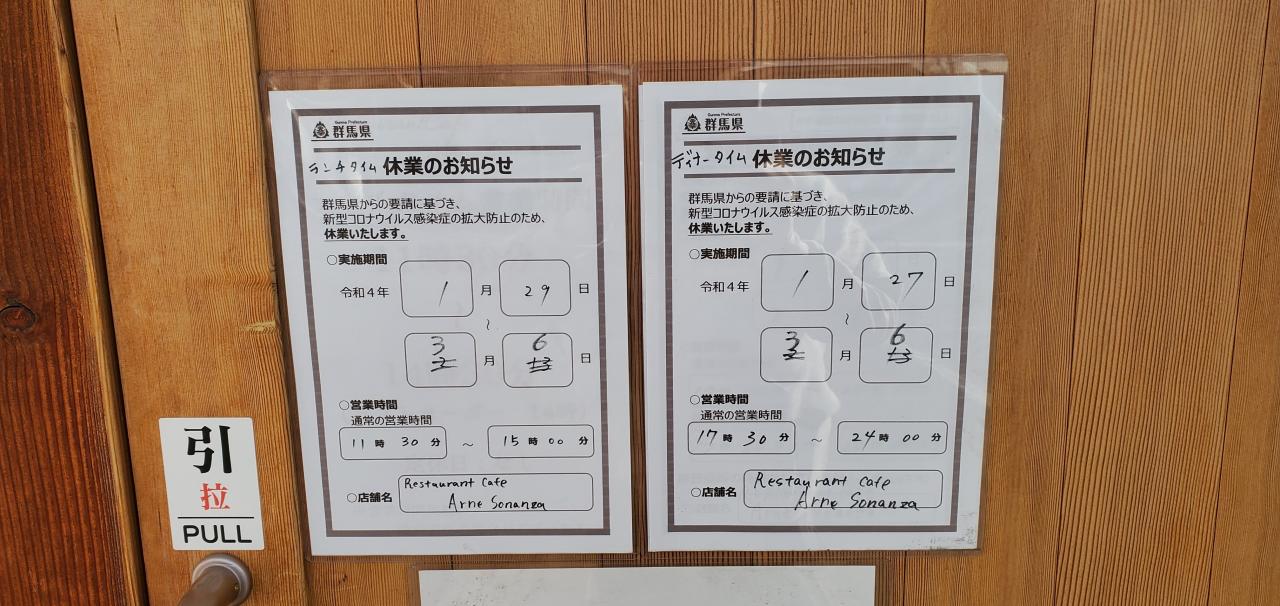 引
拉
PULL
Gunma Prefecture
群馬県
ランチタイム 休業のお知らせ
群馬県からの要請に基づき、
新型コロナウイルス感染症の拡大防止のため、
休業いたします。
○実施期間
令和4年 1 月 29 日
~
3 月 6 日
○営業時間
通常の営業時間
11 時 30 分 ~ 15 時 00 分
○店舗名 Restaurant Cafe
Arne Sonanza
Gunma Prefecture
群馬県
ディナータイム 休業のお知らせ
群馬県からの要請に基づき、
新型コロナウイルス感染症の拡大防止のため、
休業いたします。
○実施期間
令和4年 1 月 27 日
~
3 月 6 日
○営業時間
通常の営業時間
17 時 30 分 ~ 24 時 00 分
○店舗名 Restaurant Cafe
Arne Sonanza